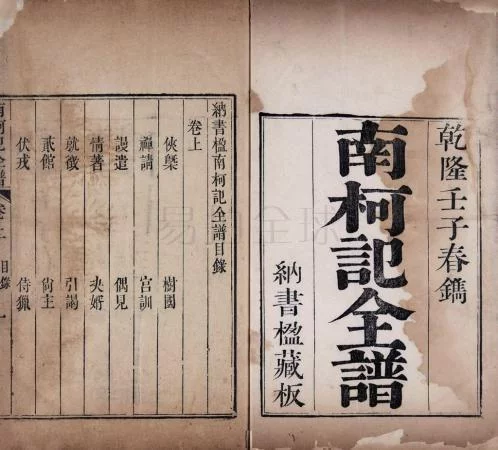 乾隆壬子春鐫
南柯記全譜
納書楹藏板
納書楹南柯記全譜目錄
卷上
俠槩 樹國
禪請 宮訓
謾遣 偶見
情著 决婿
就徵 引謁
貳館 尚主
伏戎 侍獵
南柯記全譜 卷上 目錄 一
易拍全球